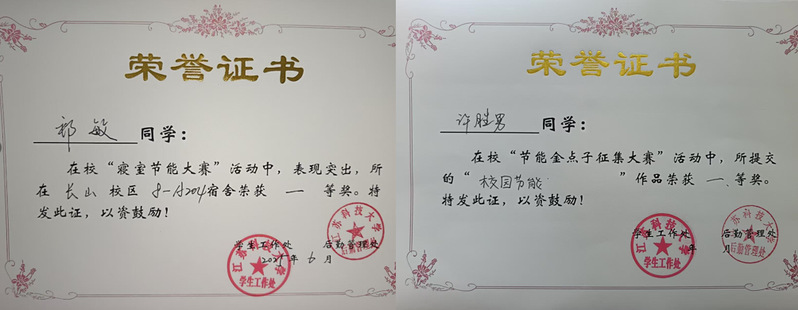 荣誉证书
郭敏 同学：
在校“寝室节能大赛”活动中，表现突出，所
在 长山 校区 8-A204宿舍荣获 一 等奖。特
发此证，以资鼓励！
学生工作处 后勤管理处
年 6 月
江苏科技大学
学生工作处
江苏科技大学
后勤管理处
荣誉证书
许胜男 同学：
在校“节能金点子征集大赛”活动中，所提交
的“校园节能”作品荣获 一 等奖。
特发此证，以资鼓励！
学生工作处 后勤管理处
年 月
江苏科技大学
学生工作处
江苏科技大学
后勤管理处